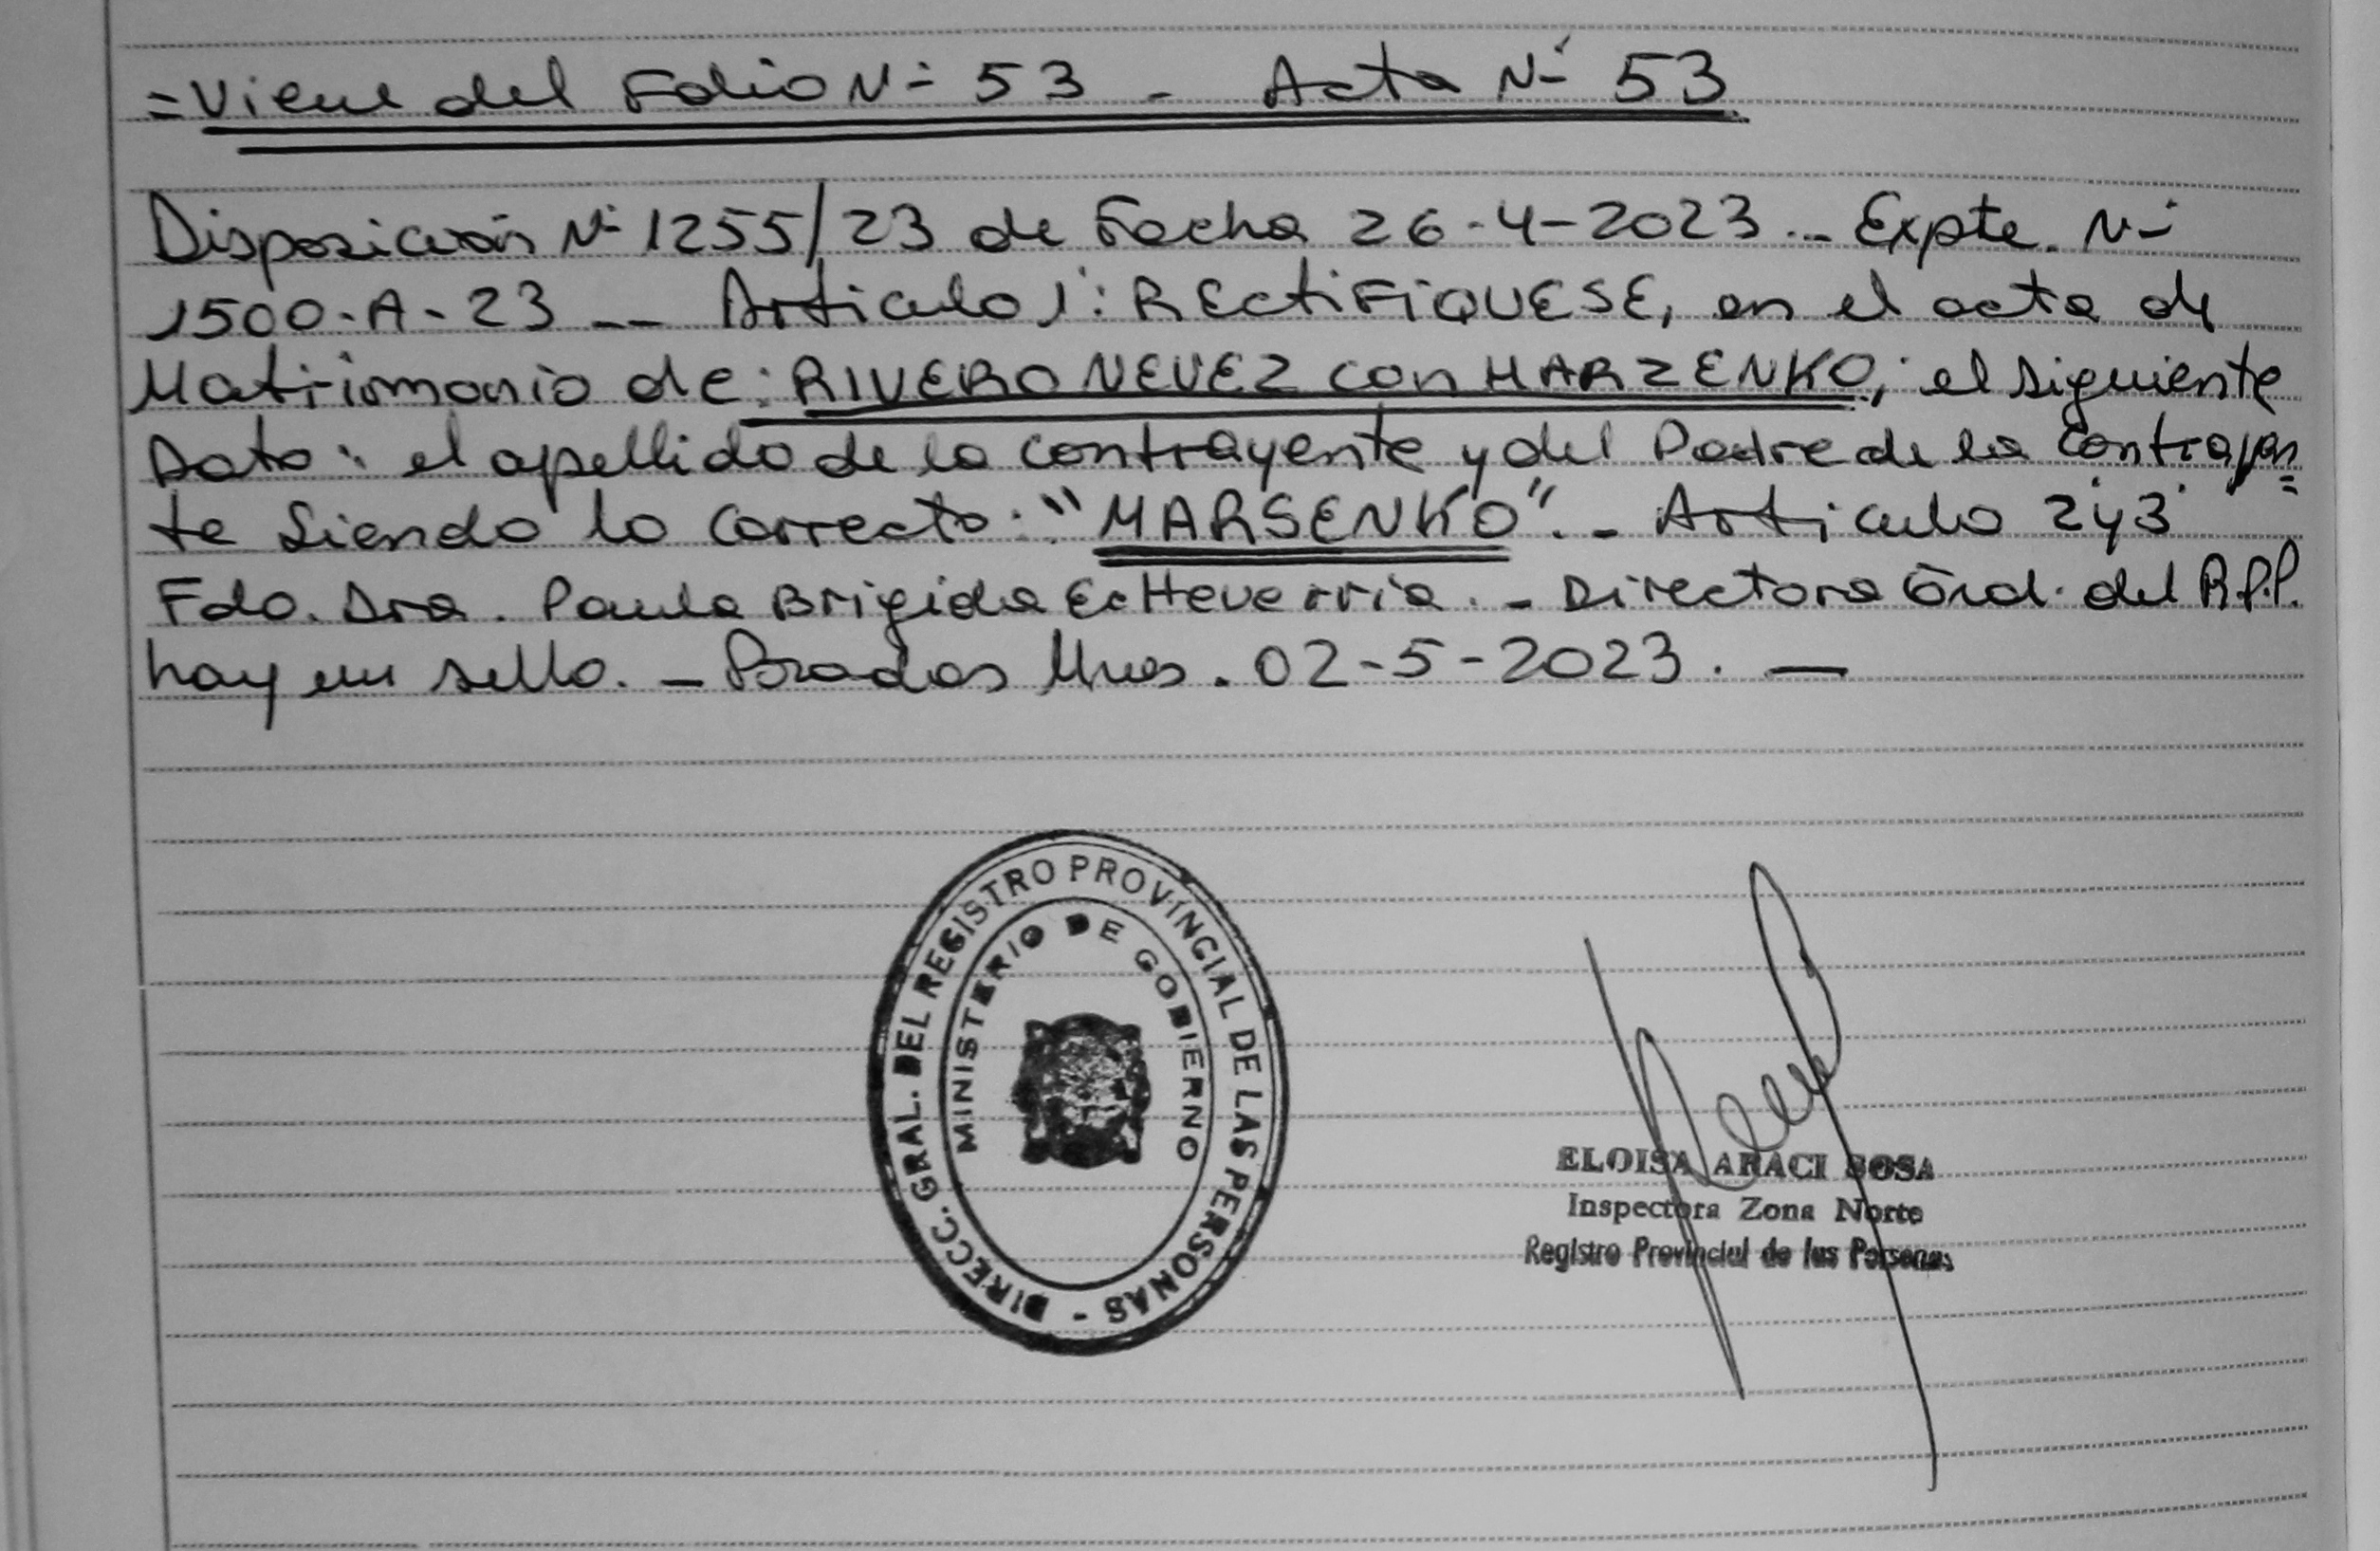 =Viene del Folio Nº 53 - Acta Nº 53
Disposición Nº 1255/23 de Fecha 26-4-2023.- Expte. Nº
1500-A-23 -- Artículo 1º: RECTIFIQUESE, en el acta de
Matrimonio de: RIVERO NEVEZ con MARZENKO; el siguiente
Dato: el apellido de la contrayente y del Padre de la Contrayen=
te Siendo lo Correcto: "MARSENKO".- Artículo 2º y 3º
Fdo. Dra. Paula Brigida EcHeverria. - Directora Grd. del R.P.P.
hay un sello. - Posadas Mnes. 02-5-2023. —
DIRECC. GRAL. DEL REGISTRO PROVINCIAL DE LAS PERSONAS -
MINISTERIO DE GOBIERNO
ELOISA ARACI SOSA
Inspectora Zona Norte
Registro Provincial de las Personas